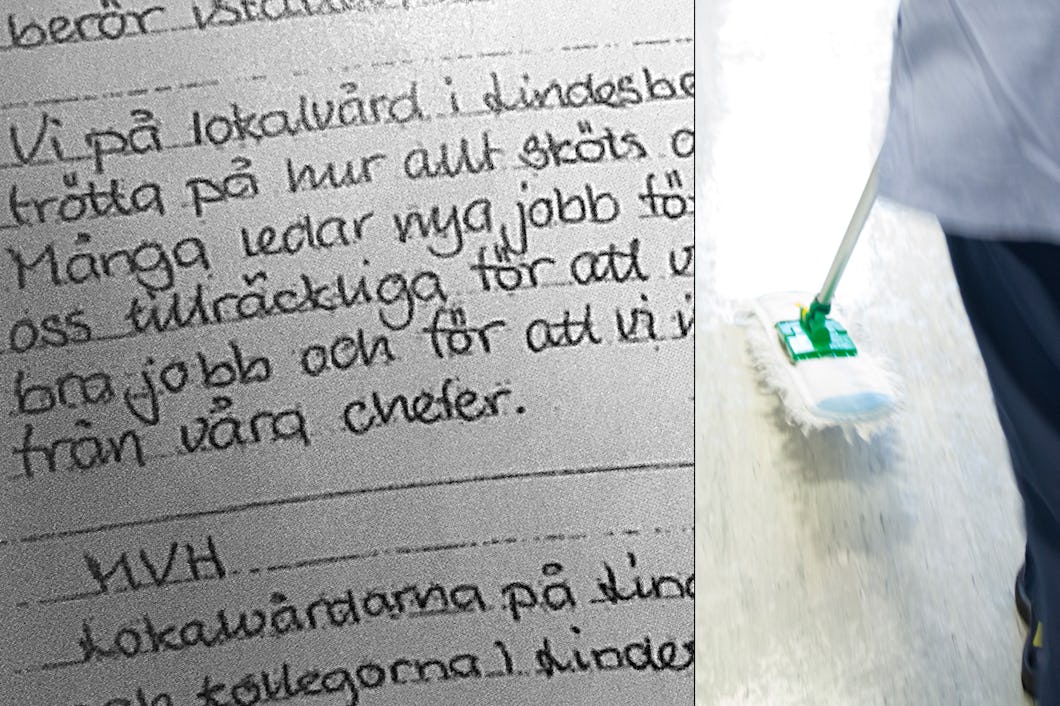 berör
Vi på lokalvård i Lindesbe
trötta på hur allt sköts o
Många letar nya jobb fö
oss tillräckliga för att v
bra jobb och för att vi v
från våra chefer.
MVH
Lokalvårdarna på Lind
kollegorna i Lindes